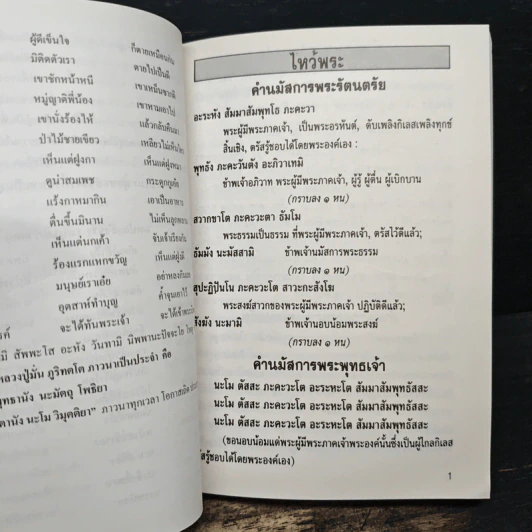 ผู้ดีเข็นใจ ก็ตายเหมือนกัน
มิติดตัวเรา ตายไปเป็นผี
เขาชักหน้าหนี เขาเหม็นซากผี
หมู่ญาติพี่น้อง เขาหามเอาไป
เขานั่งร้องไห้ แล้วกลับคืนมา
ป่าไม้ชายเขียว เหลียวไม่เห็นใคร
เห็นแต่ฝูงกา เห็นแต่ฝูงหมา
ดูน่าสมเพช กระดูกกูเอ๋ย
แร้งกาหมากิน เอาเป็นอาหาร
ตื่นขึ้นมินาน ไม่เห็นลูกหลาน
เห็นแต่นกเค้า จับเจ่าเรียงกัน
ร้องแรกแหกขวัญ เห็นแต่ฝูงผี
มนุษย์เราเอ๋ย อย่าหลงกันเลย
อุตสาห์ทำบุญ ค้ำจุนเอาไว้
จะได้ทันพระเจ้า จะได้เข้า
มิ สัพพะโส อะหัง วันทามิ นิพพานะปัจจะโย
หลวงปู่มั่น ภูริทตฺโต ภาวนาเป็นประจำ คือ
พุทธานัง นะมัตถุ โพธิยา
ตานัง นะโม วิมุตติยา” ภาวนาทุกเวลา โอกาสเปิด
ไหว้พระ
คำนมัสการพระรัตนตรัย
อะระหัง สัมมาสัมพุทโธ ภะคะวา
พระผู้มีพระภาคเจ้า, เป็นพระอรหันต์, ดับเพลิงกิเลสเพลิงทุกข์
สิ้นเชิง, ตรัสรู้ชอบได้โดยพระองค์เอง :
พุทธัง ภะคะวันตัง อะภิวาเทมิ
ข้าพเจ้าอภิวาท พระผู้มีพระภาคเจ้า, ผู้รู้ ผู้ตื่น ผู้เบิกบาน
(กราบลง ๑ หน)
สวากขาโต ภะคะวะตา ธัมโม
พระธรรมเป็นธรรมที่ พระผู้มีพระภาคเจ้า, ตรัสไว้ดีแล้ว;
ธัมมัง นะมัสสามิ ข้าพเจ้านมัสการพระธรรม
(กราบลง ๑ หน)
สุปะฏิปันโน ภะคะวะโต สาวะกะสังโฆ
พระสงฆ์สาวกของพระผู้มีพระภาคเจ้า ปฏิบัติดีแล้ว;
สังฆัง นะมามิ ข้าพเจ้านอบน้อมพระสงฆ์
(กราบลง ๑ หน)
คำนมัสการพระพุทธเจ้า
นะโม ตัสสะ ภะคะวะโต อะระหะโต สัมมาสัมพุทธัสสะ
นะโม ตัสสะ ภะคะวะโต อะระหะโต สัมมาสัมพุทธัสสะ
นะโม ตัสสะ ภะคะวะโต อะระหะโต สัมมาสัมพุทธัสสะ
(ขอนอบน้อมแด่พระผู้มีพระภาคเจ้าพระองค์นั้นซึ่งเป็นผู้ไกลกิเลส
ตรัสรู้ชอบได้โดยพระองค์เอง)
1